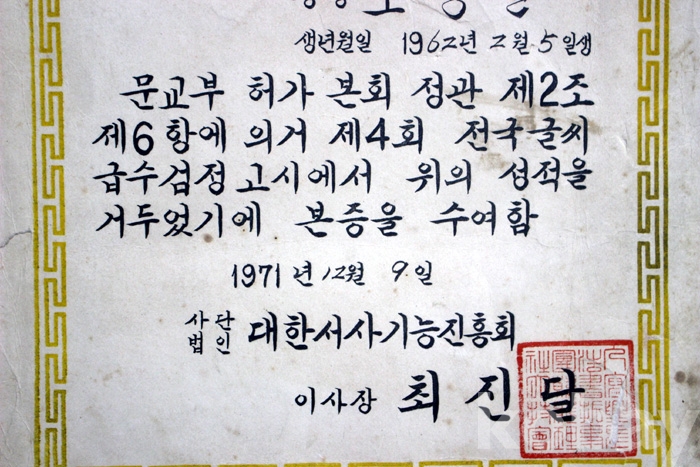 생년월일 1962년 2월 5일생
문교부 허가 본회 정관 제2조
제6항에 의거 제4회 전국글씨
급수검정고시에서 위의 성적을
거두었기에 본증을 수여함
1971년 12월 9일
사단법인 대한서사기능진흥회
이사장 최진달